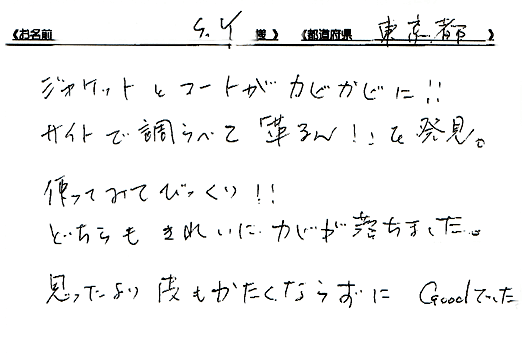 《お名前 S.Y 様》 《都道府県 東京都 》
ジャケットとコートがカビカビに!!
サイトで調らべて「革るん!」を発見。
使ってみてびっくり!!
どちらもきれいにカビが落ちました。
思ったより皮もかたくならずに Goodでした